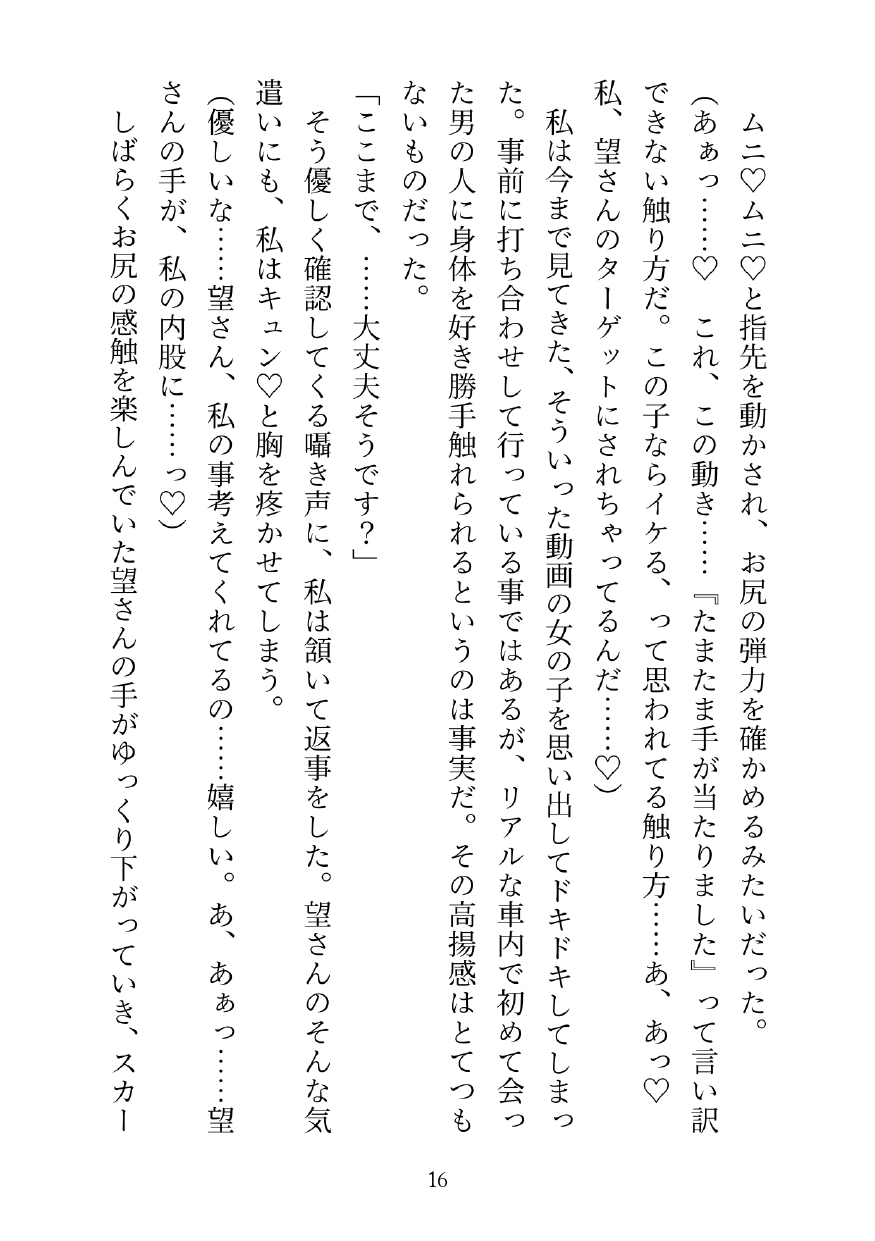 ムニ♡ムニ♡と指先を動かされ、お尻の弾力を確かめるみたいだった。
（あぁっ……♡　これ、この動き……『たまたま手が当たりました』って言い訳
できない触り方だ。この子ならイケる、って思われてる触り方……あ、あっ♡
私、望さんのターゲットにされちゃってるんだ……♡）
私は今まで見てきた、そういった動画の女の子を思い出してドキドキしてしまっ
た。事前に打ち合わせして行っている事ではあるが、リアルな車内で初めて会っ
た男の人に身体を好き勝手触れられるというのは事実だ。その高揚感はとてつも
ないものだった。
「ここまで、……大丈夫そうです？」
そう優しく確認してくる囁き声に、私は頷いて返事をした。望さんのそんな気
遣いにも、私はキュン♡と胸を疼かせてしまう。
（優しいな……望さん、私の事考えてくれてるの……嬉しい。あ、あぁっ……望
さんの手が、私の内股に……っ♡）
しばらくお尻の感触を楽しんでいた望さんの手がゆっくり下がっていき、スカー
16